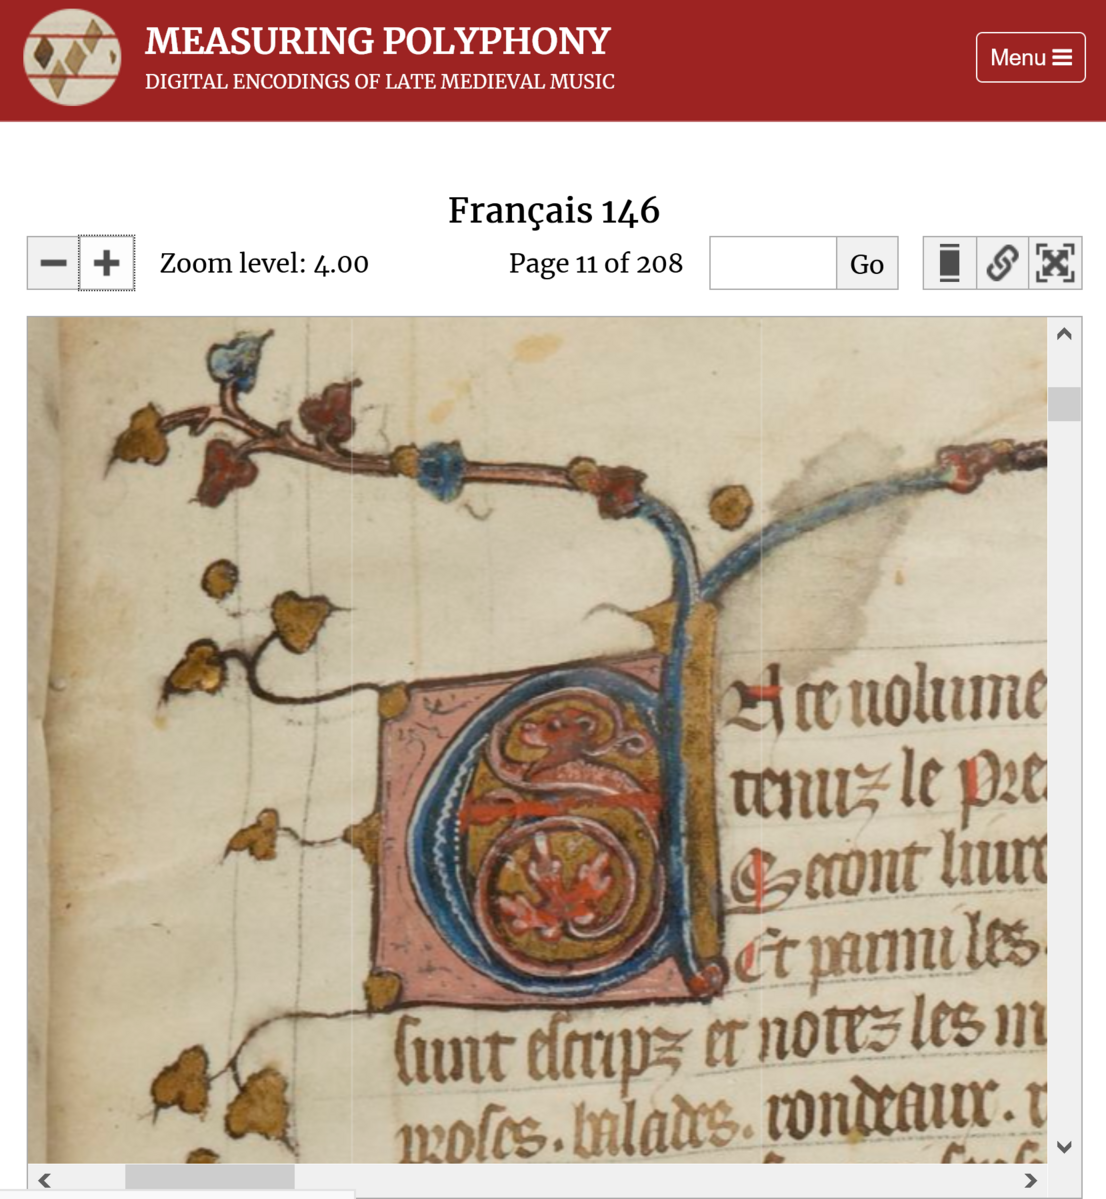 MEASURING POLYPHONY
DIGITAL ENCODINGS OF LATE MEDIEVAL MUSIC
Menu
Français 146
Zoom level: 4.00
Page 11 of 208
Go
EN ce uolume
tenuz le Pre
Secont liure
Et parmi les.
sunt escripz et notez les m
proses. balades. rondeaux. r